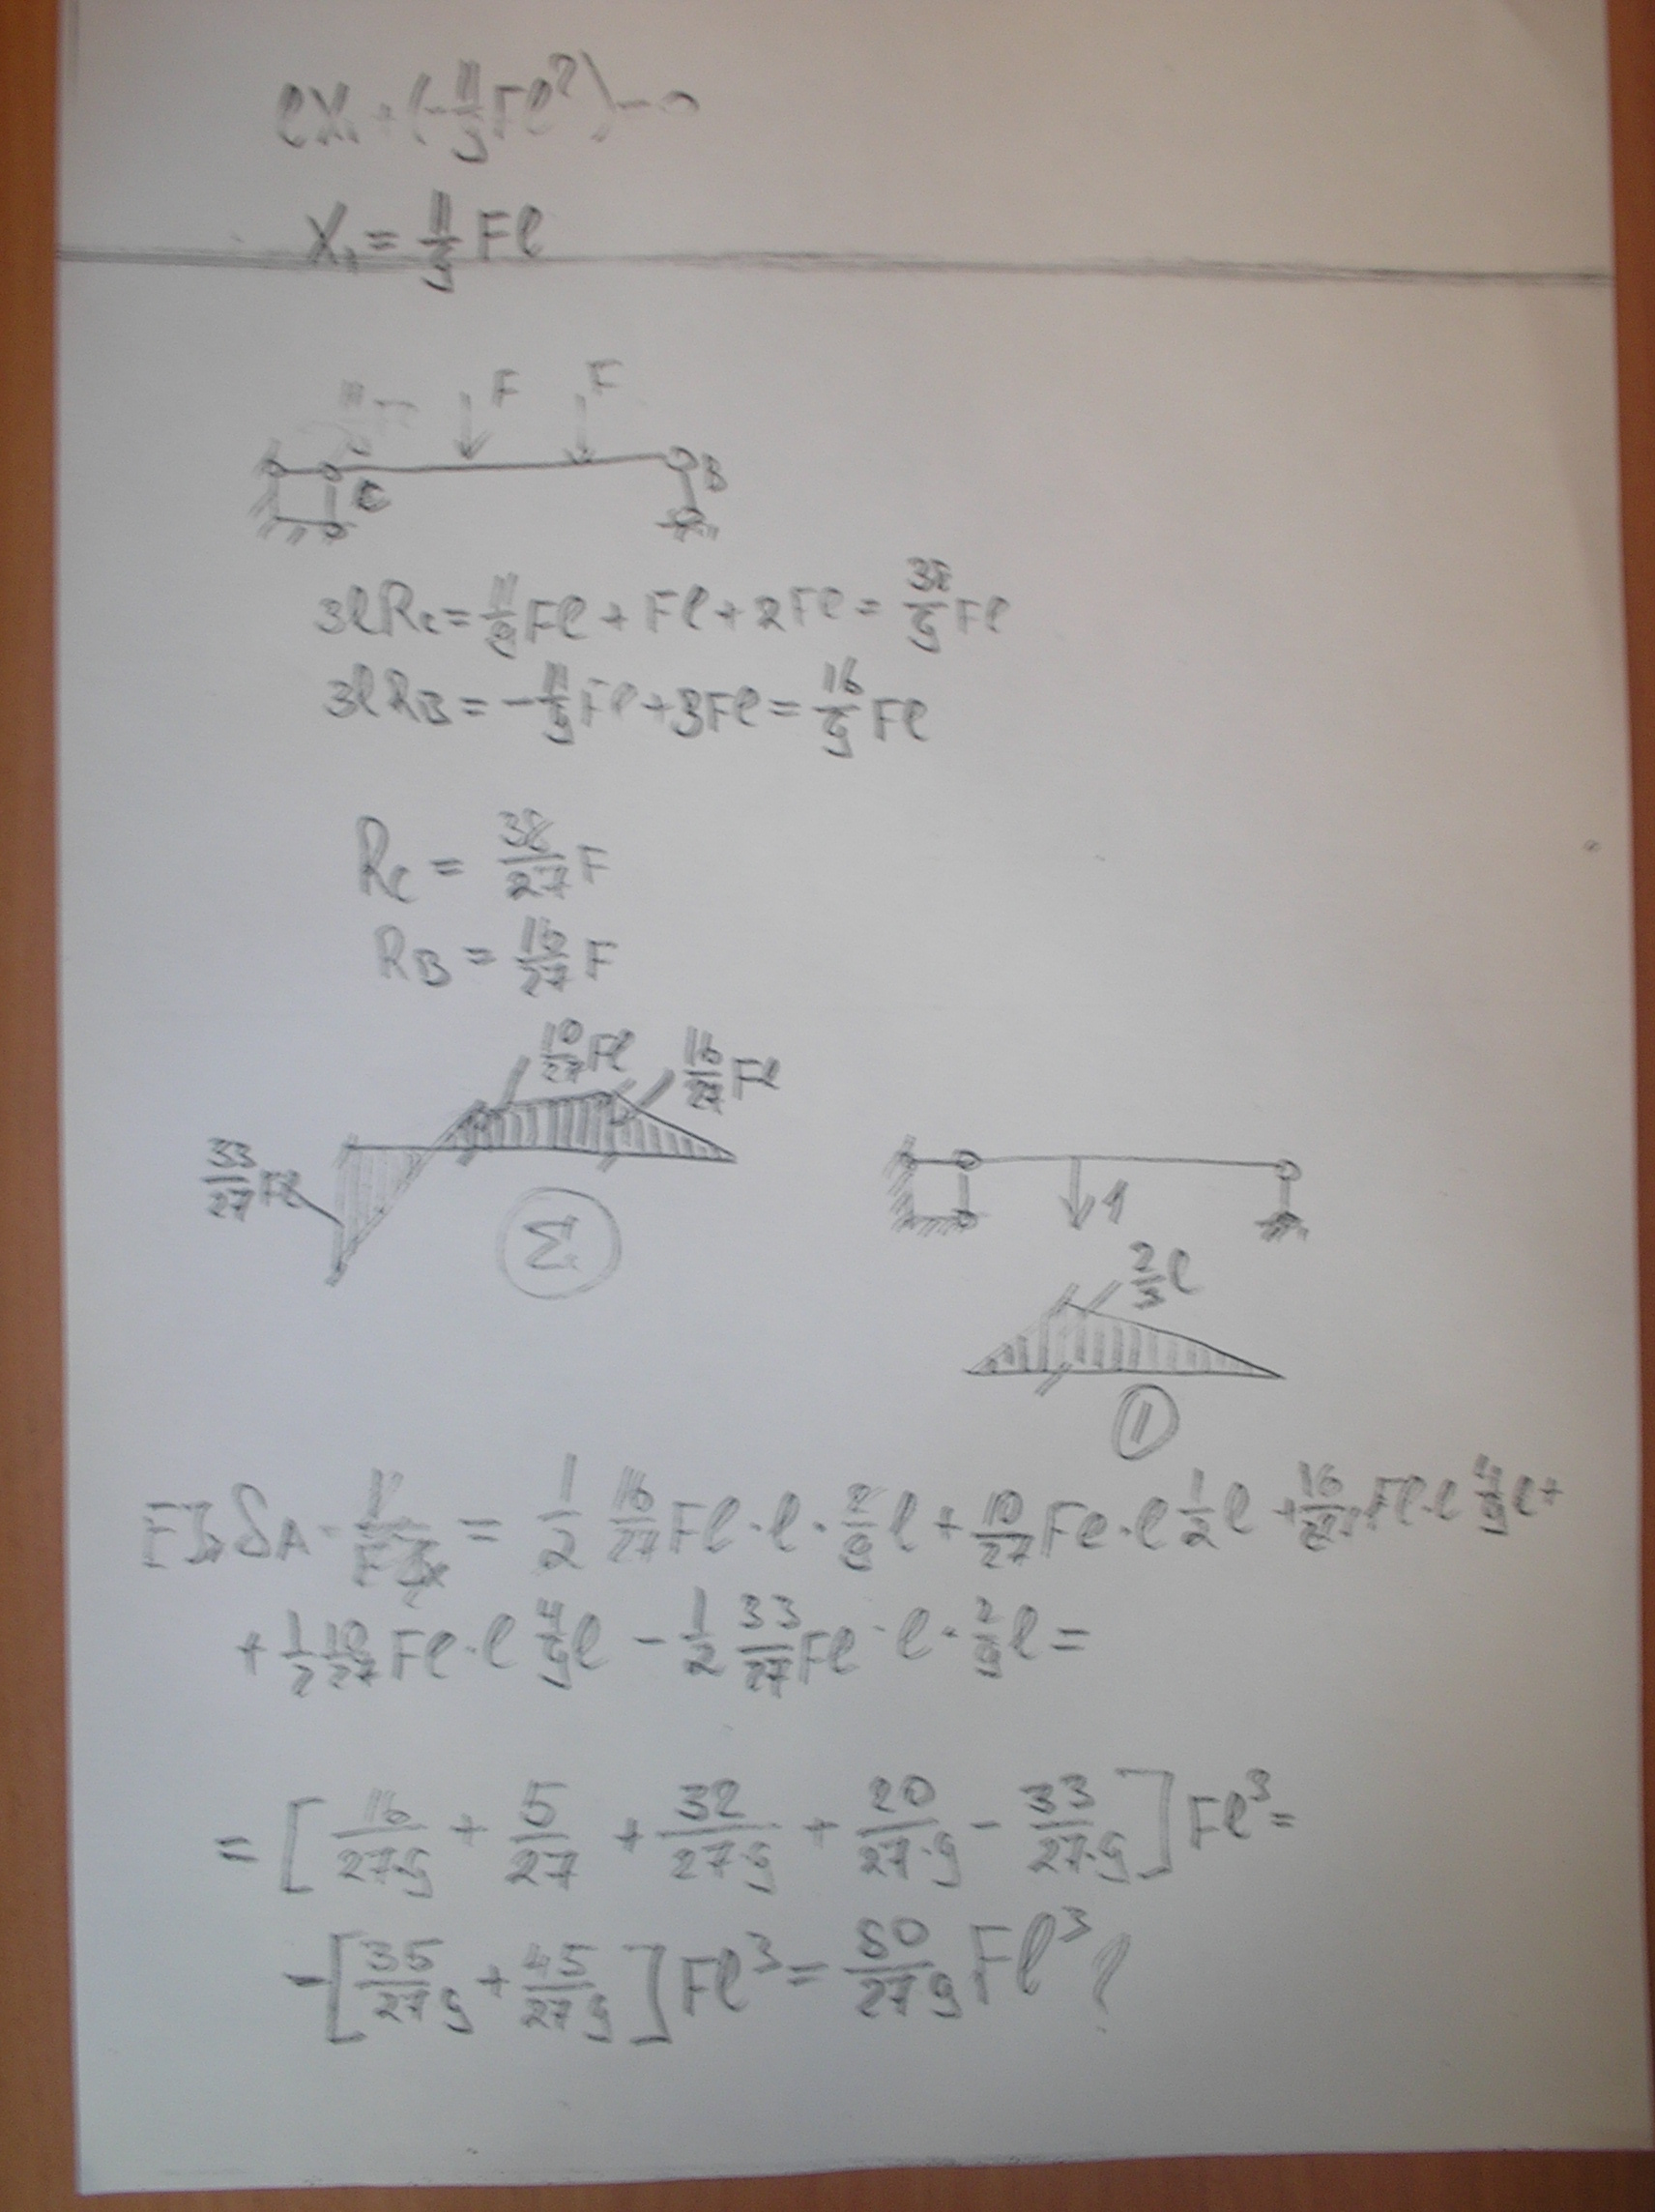 lX₁ + (-11/9 Fl²) = 0
X₁ = 11/9 Fl
F F
C B
3lRc = 11/9 Fl + Fl + 2Fl = 38/9 Fl
3lRB = -11/9 Fl + 3Fl = 16/9 Fl
Rc = 38/27 F
RB = 16/27 F
10/27 Fl 16/27 Fl
33/27 Fl
Σ
1
2/3 l
1
= 1/2 16/27 Fl·l·2/9 l + 10/27 Fl·l 1/2 l + 16/27 Fl·l 4/9 l +
+ 1/2 10/27 Fl·l 4/9 l - 1/2 33/27 Fl·l·2/9 l =
= [16/27·9 + 5/27 + 32/27·9 + 20/27·9 - 33/27·9] Fl³ =
= [35/27·9 + 45/27·9] Fl³ = 80/27·9 Fl³